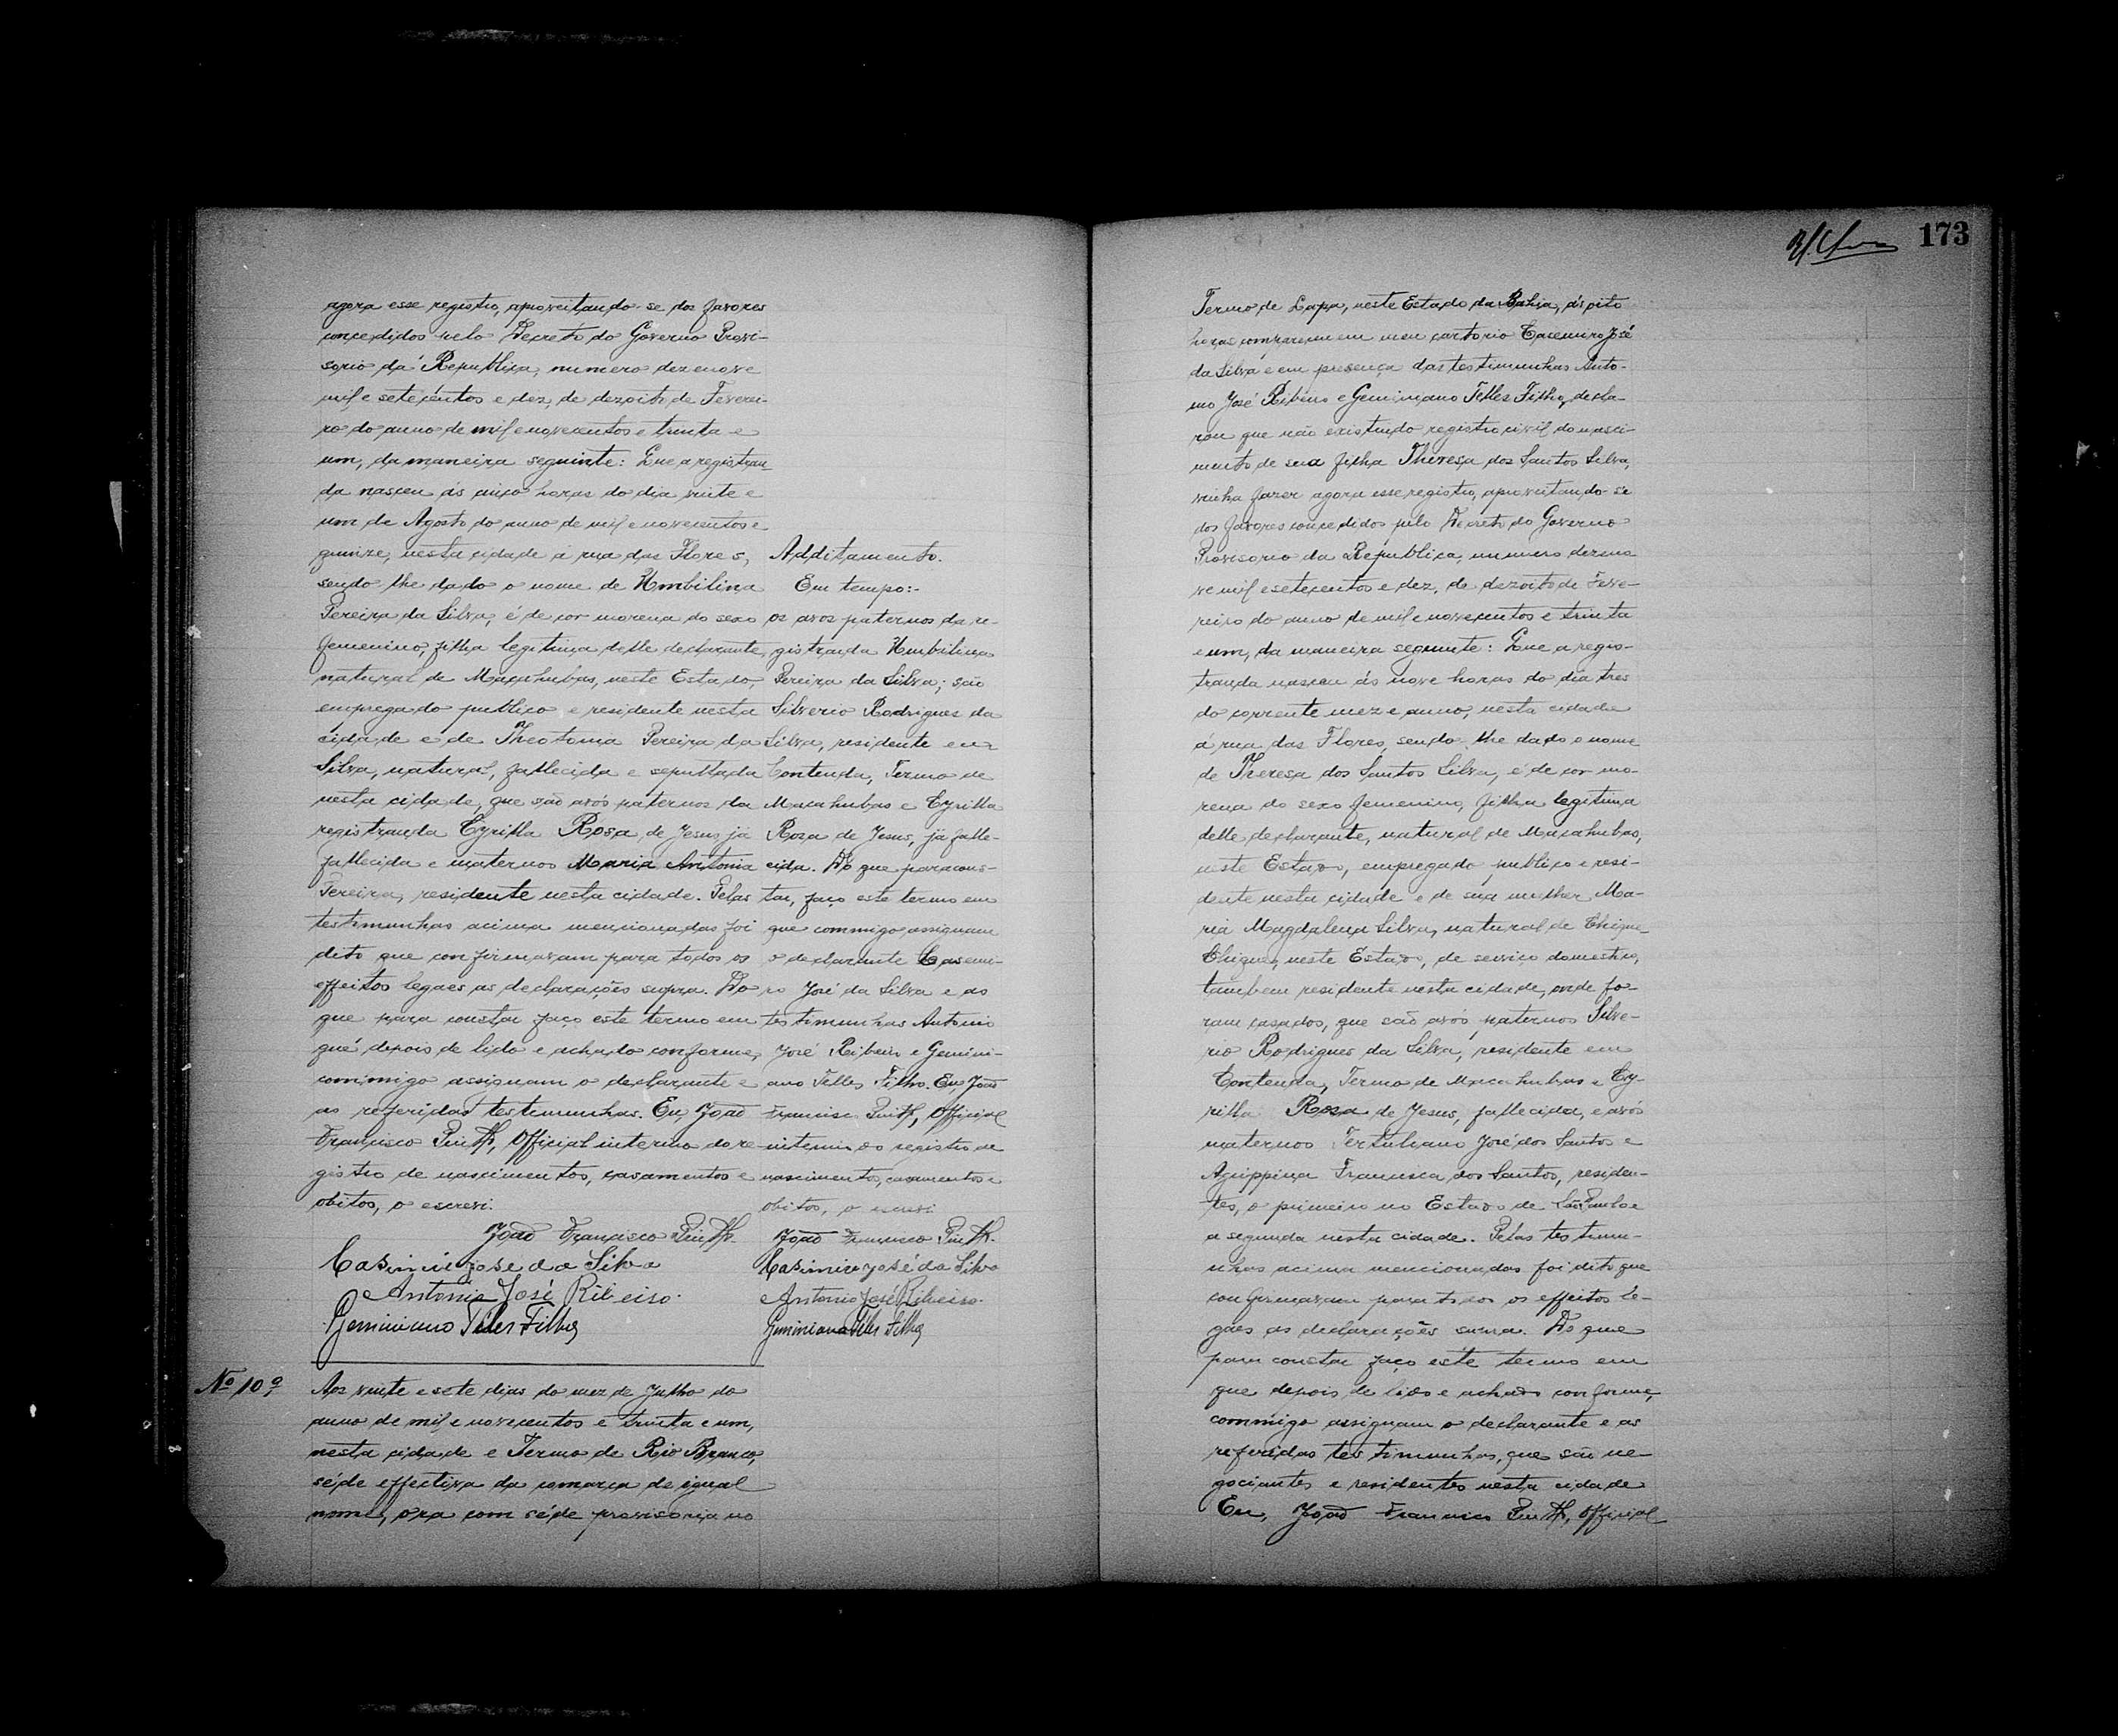 agora esse registro, aproveitando-se dos favores
concedidos pelo Decreto do Governo Provi-
sorio da Republica, numero dezenove
mil e setecentos e dez, de dezoito de Feverei-
ro do anno de mil e novecentos e trinta e
um, da maneira seguinte: Que a registran-
da nasceu ás cinco horas do dia vinte e
um de Agosto do anno de mil e novecentos e
quinze, nesta cidade á rua das Flores,
sendo-lhe dado o nome de Umbilina
Pereira da Silva, é de cor morena do sexo
femenino, filha legitima delle declarante,
natural de Macahubas, neste Estado,
empregado publico e residente nesta
cidade e de Theotonia Pereira da
Silva, natural, fallecida e sepultada
nesta cidade, que são avós paternos da
registranda Cyrilla Rosa de Jesus, já
fallecida e maternos Maria Antonia
Pereira, residente nesta cidade. Pelas
testimunhas acima mencionadas foi
dito que confirmavam para todos os
effeitos legaes as declarações supra. Do
que para constar faço este termo em
que depois de lido e achado conforme,
commigo assignam o declarante e
as referidas testimunhas. Eu, João
Francisco Pinto, Official interino do re-
gistro de nascimentos, casamentos e
obitos, o escrevi.
João Francisco Pinto
Casimiro jose da Silva
Antonio José Ribeiro.
Geminiano Teles Filho
Additamento.
Em tempo:-
os avos paternos da re-
gistranda Umbilina
Pereira da Silva; são
Silverio Rodrigues da
Silva, residente em
Contenda, Termo de
Macahubas e Cyrilla
Rosa de Jesus, já falle-
cida. Do que para cons-
tar, faço este termo em
que commigo assignam
o declarante Casemi-
ro José da Silva e as
testimunhas Antonio
José Ribeiro e Gemini-
ano Telles Filho. Eu, João
Francisco Pinto, Official
interino do registro de
nascimentos, casamentos e
obitos, o escrevi.
João Francisco Pinto
Casimiro josé da Silva
Antonio José Ribeiro.
Geminiano Teles Filho
Nº 10º
Aos vinte e sete dias do mez de Julho do
anno de mil e novecentos e trinta e um,
nesta cidade e Termo de Rio Branco,
séde effectiva da comarca de igual
nome, ora com séde provisoria no
173
Termo de Lapa, neste Estado da Bahia, ás oito
horas compareceu em meu cartorio Casemiro José
da Silva e em presença das testimunhas Anto-
nio José Ribeiro e Geminiano Telles Filho, decla-
rou que não existindo registro civil do nasci-
mento de sua filha Theresa dos Santos Silva,
vinha fazer agora esse registro, aproveitando-se
dos favores concedidos pelo Decreto do Governo
Provisorio da Republica, numero dezeno
ve mil e setecentos e dez, de dezoito de Feve-
reiro do anno de mil e novecentos e trinta
e um, da maneira seguinte: Que a regis-
tranda nasceu ás nove horas do dia tres
do corrente mez e anno, nesta cidade
á rua das Flores, sendo-lhe dado o nome
de Theresa dos Santos Silva, é de cor mo-
rena do sexo femenino, filha legitima
delle declarante, natural de Macahubas,
neste Estado, empregado publico e resi-
dente nesta cidade e de sua mulher Ma-
ria Magdalena Silva, natural de Chique-
Chique, neste Estado, de serviço domestico,
tambem residente nesta cidade, onde fo-
ram casados, que são avós paternos Silve-
rio Rodrigues da Silva, residente em
Contenda, Termo de Macahubas e Cy-
rilla Rosa de Jesus, fallecida, e avós
maternos Tertuliano José dos Santos e
Agrippina Francisca dos Santos, residen-
tes, o primeiro no Estado de São Paulo e
a segunda nesta cidade. Pelas testimu-
nhas acima mencionadas foi dito que
confirmavam para todos os effeitos le-
gaes as declarações supra. Do que
para constar faço este termo em
que depois de lido e achado conforme,
commigo assignam o declarante e as
referidas testimunhas, que são ne-
gociantes e residentes nesta cidade
Eu, João Francisco Pinto, Official